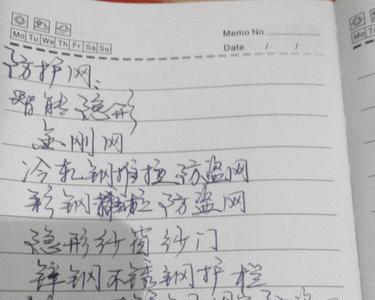 Memo No.
Mo Tu We Th Fr Sa Su
Date / /
防护网:
智能隐形
金刚网
冷轧钢推拉防盗网
彩钢推拉防盗网
隐形纱窗纱门
锌钢不锈钢护栏